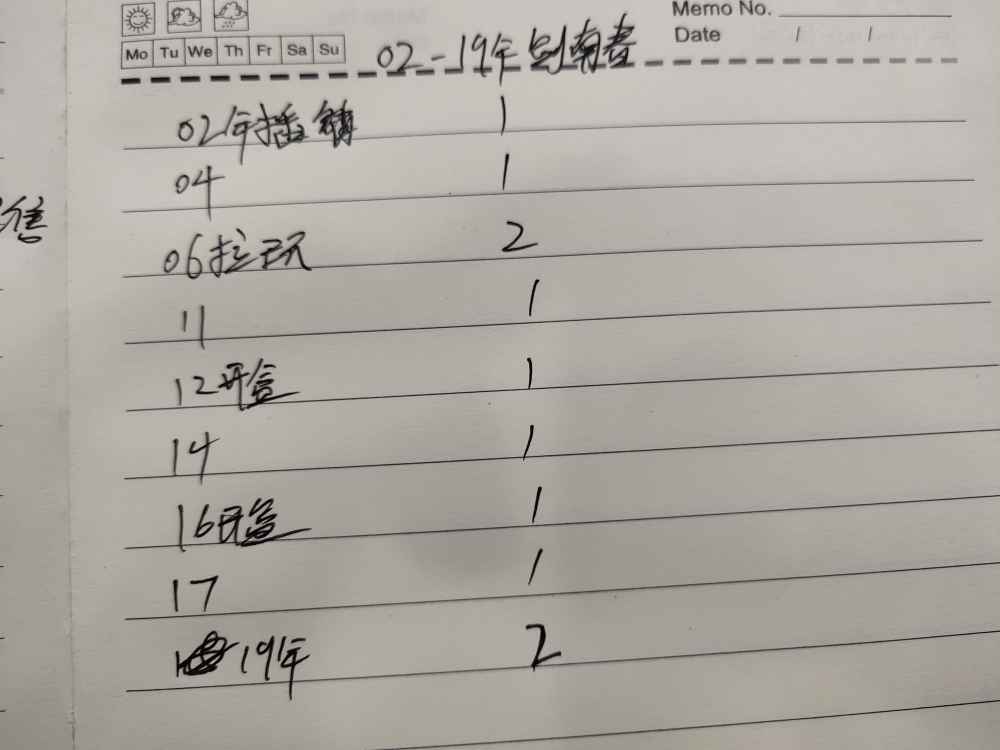 Memo No.
Mo Tu We Th Fr Sa Su
Date / /
02-19年剑南春
02年插销 1
04 1
06拉环 2
11 1
12开盒 1
14 1
16开盒 1
17 1
19年 2
售